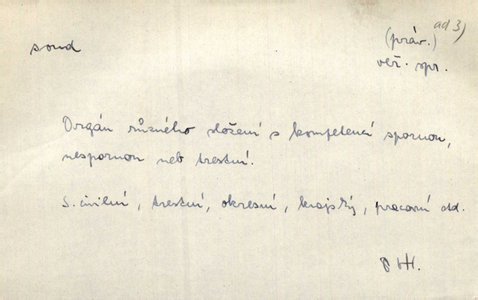 ad 3)
soud (práv.)
veř. spr.
Orgán různého složení s kompetencí spornou,
nespornou neb trestní.
S. civilní, trestní, okresní, krajský, pracovní atd.